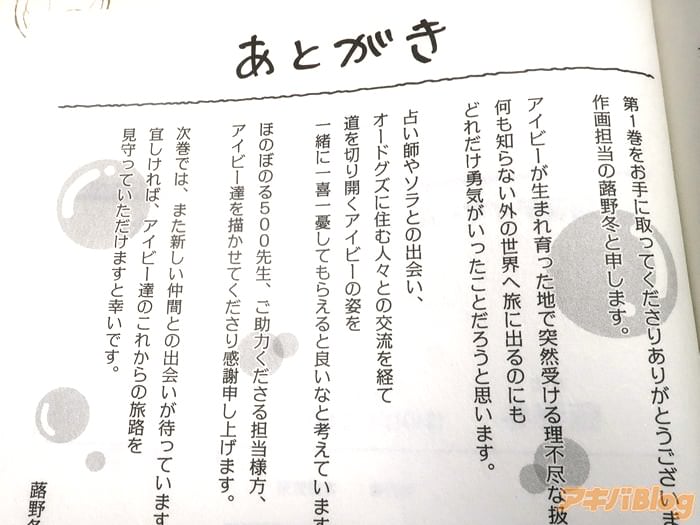 あとがき
第1巻をお手に取ってくださりありがとうございま
作画担当の蕗野冬と申します。
アイビーが生まれ育った地で突然受ける理不尽な扱
何も知らない外の世界へ旅に出るのにも
どれだけ勇気がいったことだろうと思います。
占い師やソラとの出会い、
オードグズに住む人々との交流を経て
道を切り開くアイビーの姿を
一緒に一喜一憂してもらえると良いなと考えています
ほのぼのる500先生、ご助力くださる担当様方、
アイビー達を描かせてくださり感謝申し上げます。
次巻では、また新しい仲間との出会いが待っています
宜しければ、アイビー達のこれからの旅路を
見守っていただけますと幸いです。
蕗野冬
アキバBlog